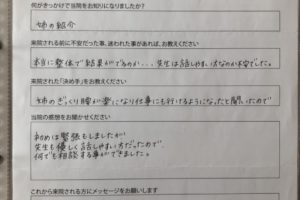 何がきっかけで当院をお知りになりましたか？
姉の紹介
来院される前に不安だった事、迷われた事があれば、お教えください
本当に整体で結果がでるのか・・・先生は話しやすい方なのか不安でした。
来院された「決め手」をお教えください
姉のぎっくり腰が楽になり仕事にも行けるようになったと聞いたので
当院の感想をお聞かせください
初めは緊張もしましたが
先生も優しく話しやすい方だったので
何でも相談する事ができました。
これから来院される方にメッセージをお願いします